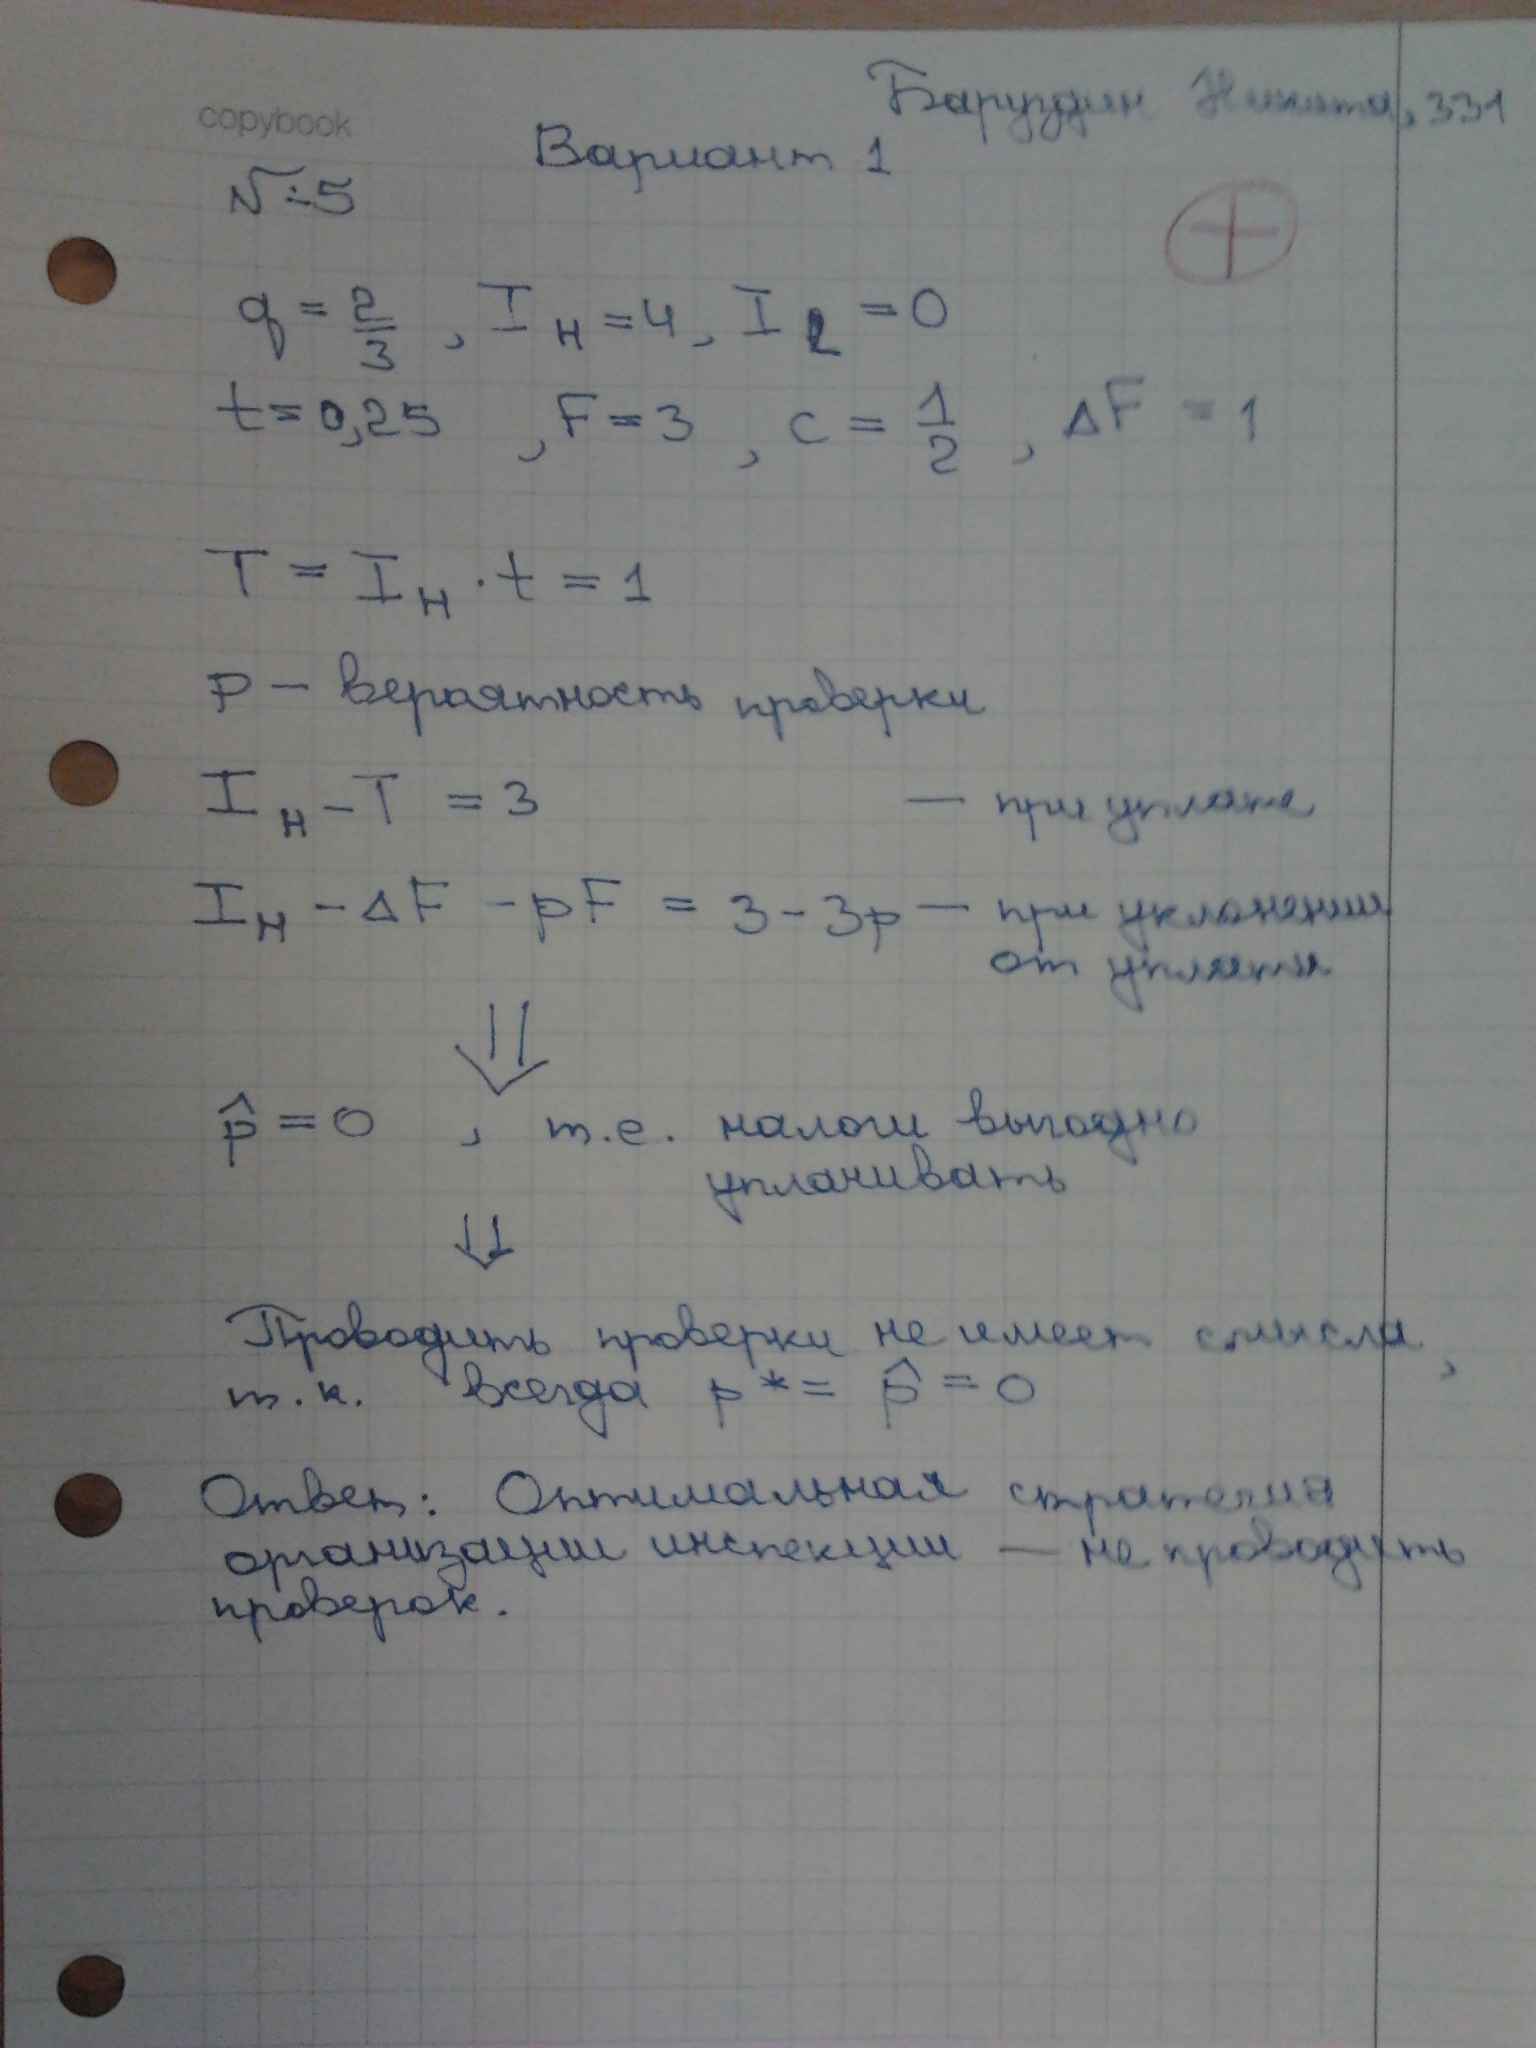 copybook
Баруздин Никита, 331
Вариант 1
№5
q = 2/3, I_H = 4, I_L = 0
t = 0,25, F = 3, c = 1/2, ΔF = 1
T = I_H · t = 1
p – вероятность проверки
I_H – T = 3 — при уплате
I_H – ΔF – pF = 3 – 3p — при уклонении
от уплаты
⇓
p̂ = 0, т.е. налоги выгодно
уплачивать
⇓
Проводить проверки не имеет смысла,
т.к. всегда p* = p̂ = 0
Ответ: Оптимальная стратегия
организации инспекции — не проводить
проверок.